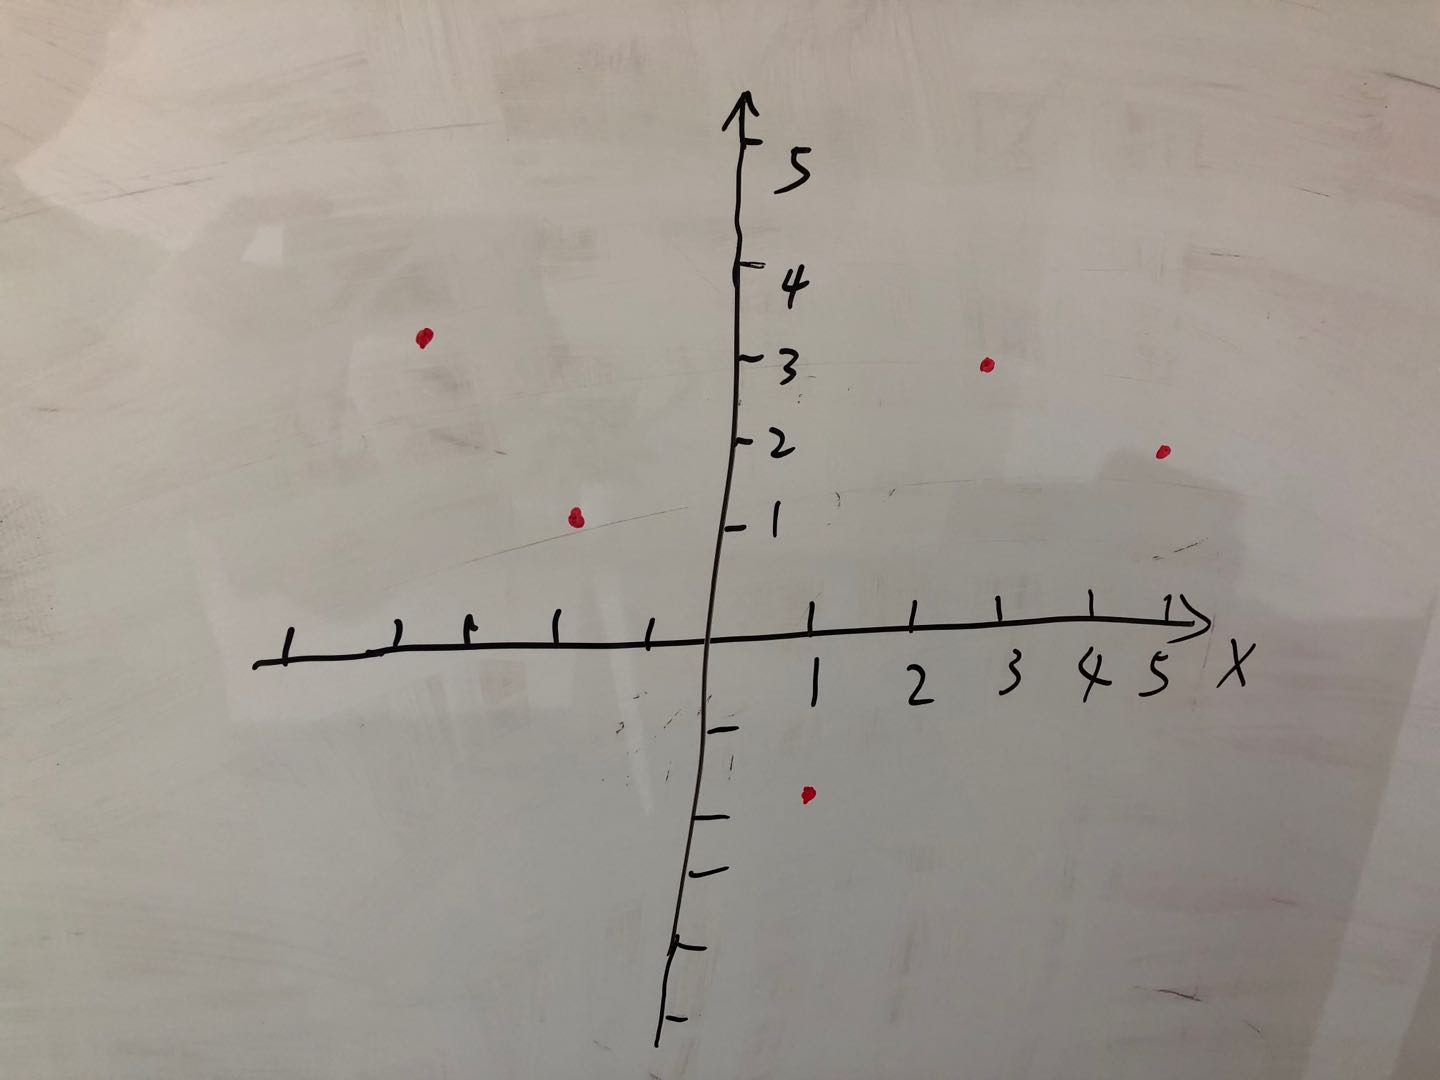 5
4
3
2
1
1 2 3 4 5 X